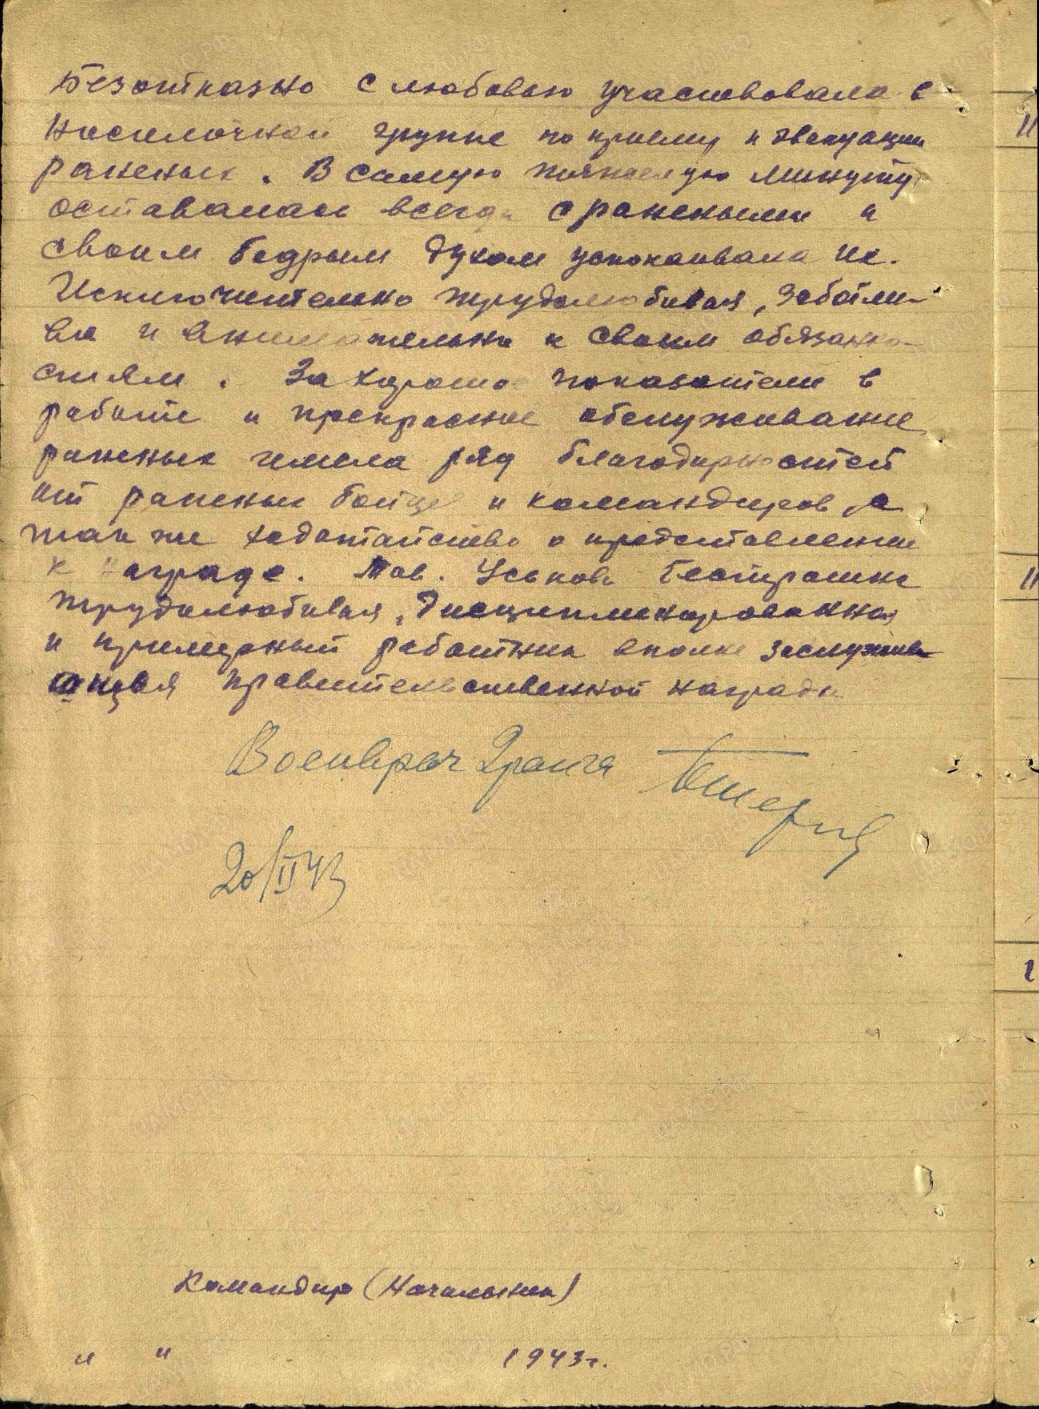 Безотказно с любовью участвовала в
носилочной группе по приему и эвакуации
раненых. В самую тяжелую минуту
оставалась всегда с ранеными и
своим бодрым духом успокаивала их.
Исключительно трудолюбивая, заботли-
ва и внимательна к своим обязанно-
стям. За хорошие показатели в
работе и прекрасное обслуживание
раненых имела ряд благодарностей
от раненых бойцов и командиров, а
так же ходатайство о представлении
к награде. Тов. Уськова бесстрашна
трудолюбивая, дисциплинированная
и примерный работник вполне заслужива-
ющая правительственной награды
Военврач 2 ранга
20/II 43
Командир (Начальник)
" " 1943 г.